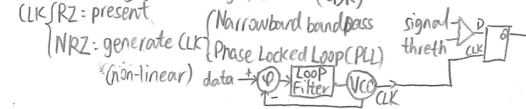 CLK { RZ: present
NRZ: generate CLK { Narrowband bandpass
Phase Locked Loop (PLL)
(non-linear)
data + φ - Loop Filter VCO CLK
signal
threth
D Q
CLK